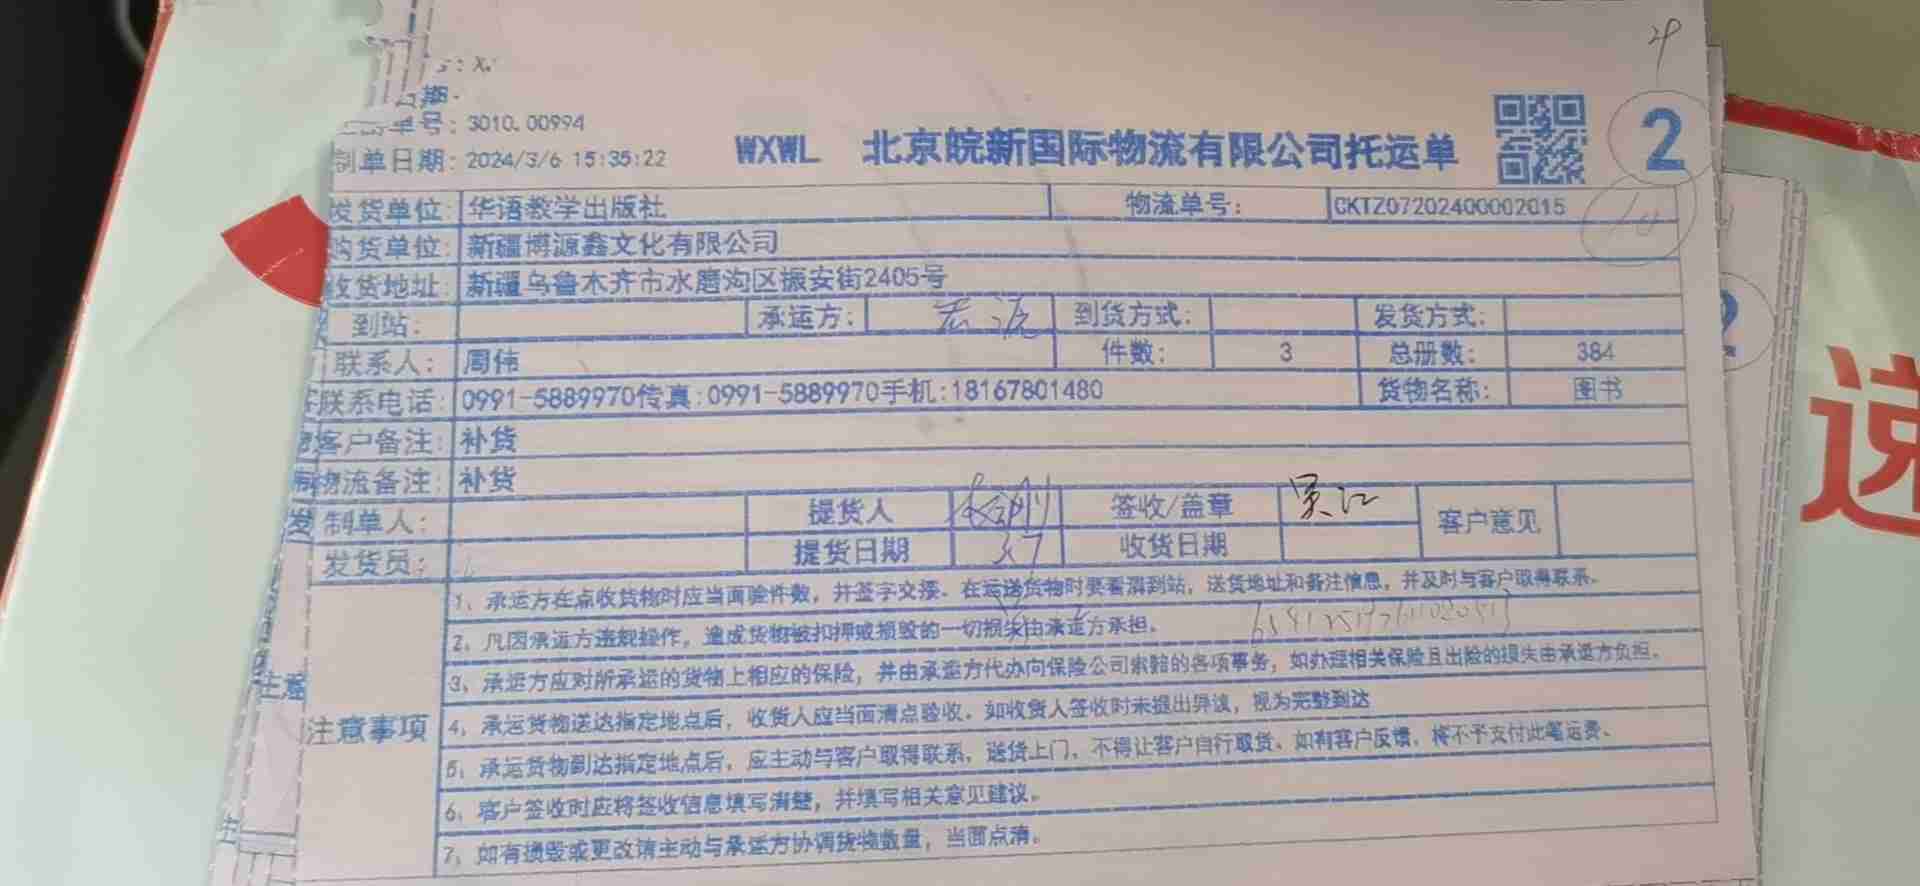 单号: 3010.00994
制单日期: 2024/3/6 15:35:22
WXWL 北京皖新国际物流有限公司托运单
2
发货单位: 华语教学出版社 物流单号: CKTZ07202400002015
购货单位: 新疆博源鑫文化有限公司
收货地址: 新疆乌鲁木齐市水磨沟区振安街2405号
到站: 承运方: 到货方式: 发货方式:
联系人: 周伟 件数: 3 总册数: 384
联系电话: 0991-5889970传真:0991-5889970手机:18167801480 货物名称: 图书
客户备注: 补货
物流备注: 补货
制单人: 提货人 签收/盖章 吴江 客户意见
发货员: 提货日期 3.7 收货日期
注意事项
1、承运方在点收货物时应当面验件数，并签字交接。在运送货物时要看清到站，送货地址和备注信息，并及时与客户取得联系。
2、凡因承运方违规操作，造成货物被扣押或损毁的一切损失由承运方承担。
3、承运方应对所承运的货物上相应的保险，并由承运方代办向保险公司索赔的各项事务，如办理相关保险且出险的损失由承运方负担。
4、承运货物送达指定地点后，收货人应当面清点验收。如收货人签收时未提出异议，视为完整到达
5、承运货物到达指定地点后，应主动与客户取得联系，送货上门，不得让客户自行取货。如有客户反馈，将不予支付此笔运费。
6、客户签收时应将签收信息填写清楚，并填写相关意见建议。
7、如有损毁或更改请主动与承运方协调货物数量，当面点清。
速